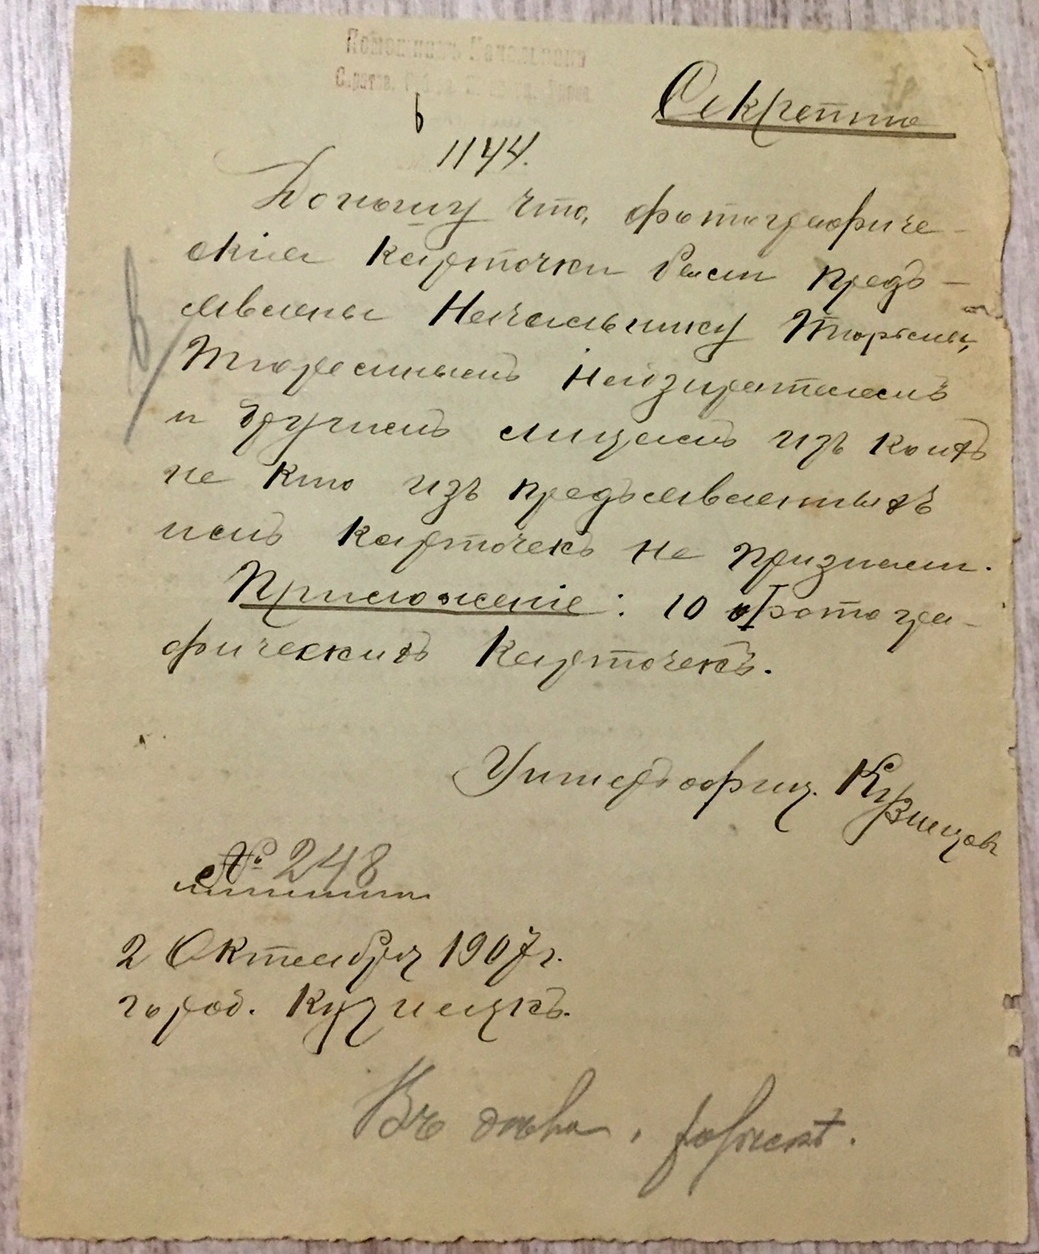 Помощникъ Начальника
Секретно
6
1144.
Доношу что, фотографиче-
скiя карточки были предъ-
явлены Начальнику Тюрьмы,
Тюремнымъ Надзирателямъ
и другимъ лицамъ изъ коихъ
не кто изъ предъявленныхъ
имъ карточекъ не призналъ.
Приложенiе: 10 Фотогра-
фическихъ Карточекъ.
Унтеръ офиц. Кузнецовъ
№ 248
2 Октября 1907 г.
город. Кузнецкъ.
Въ